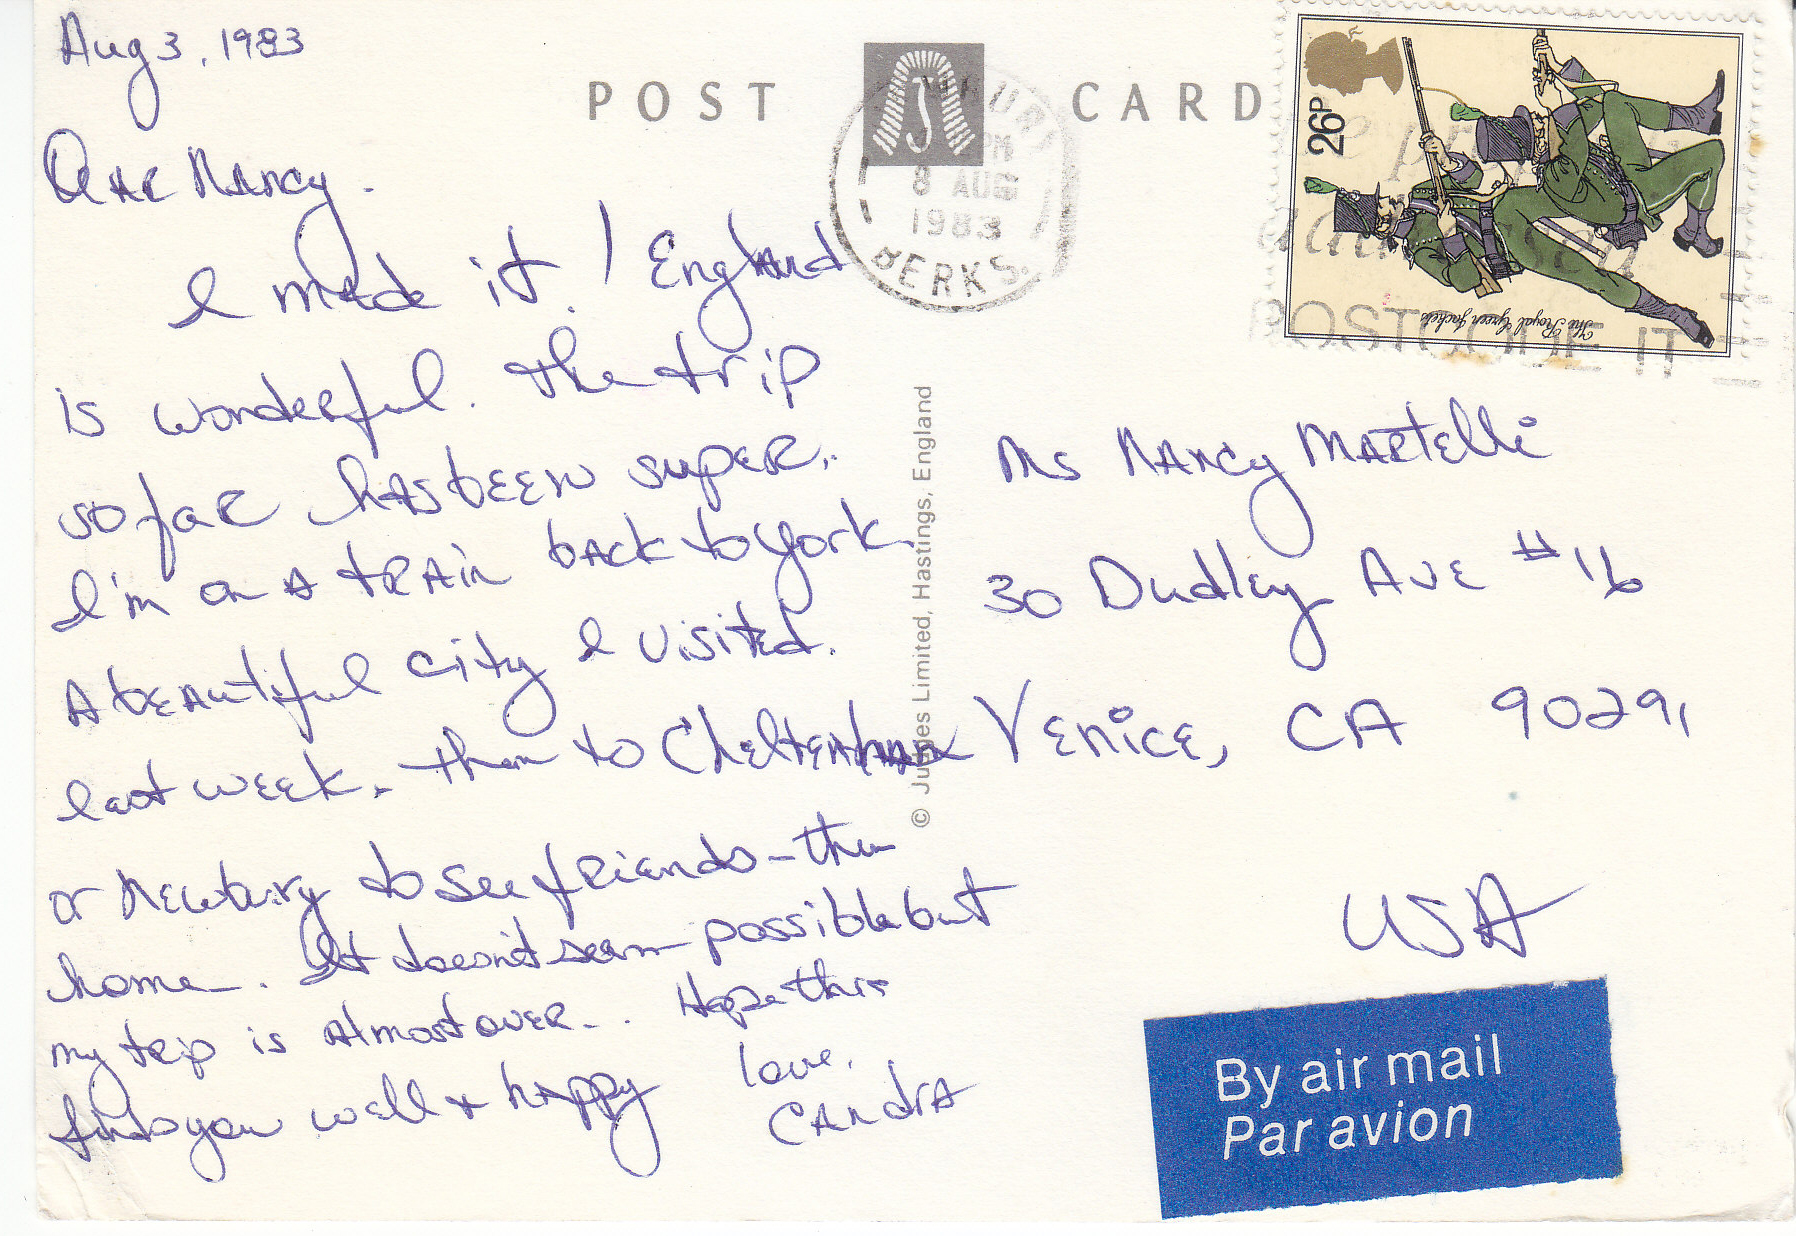 Aug 3, 1983
Dear Nancy.
I made it! England
is wonderful. The trip
so far has been super..
I'm on a train back to York.
A beautiful city I visited
last week. then to Cheltenham
or Newbury to see friends - then
home. It doesn't seem possible but
my trip is almost over.. Hope this
finds you well & happy
love,
Candra
POST CARD
J
8 AUG
1983
BERKS.
26P
The Royal Green Jackets
POSTCODE IT
© Judges Limited, Hastings, England
Ms Nancy Martelli
30 Dudley Ave #16
Venice, CA 90291
USA
By air mail
Par avion